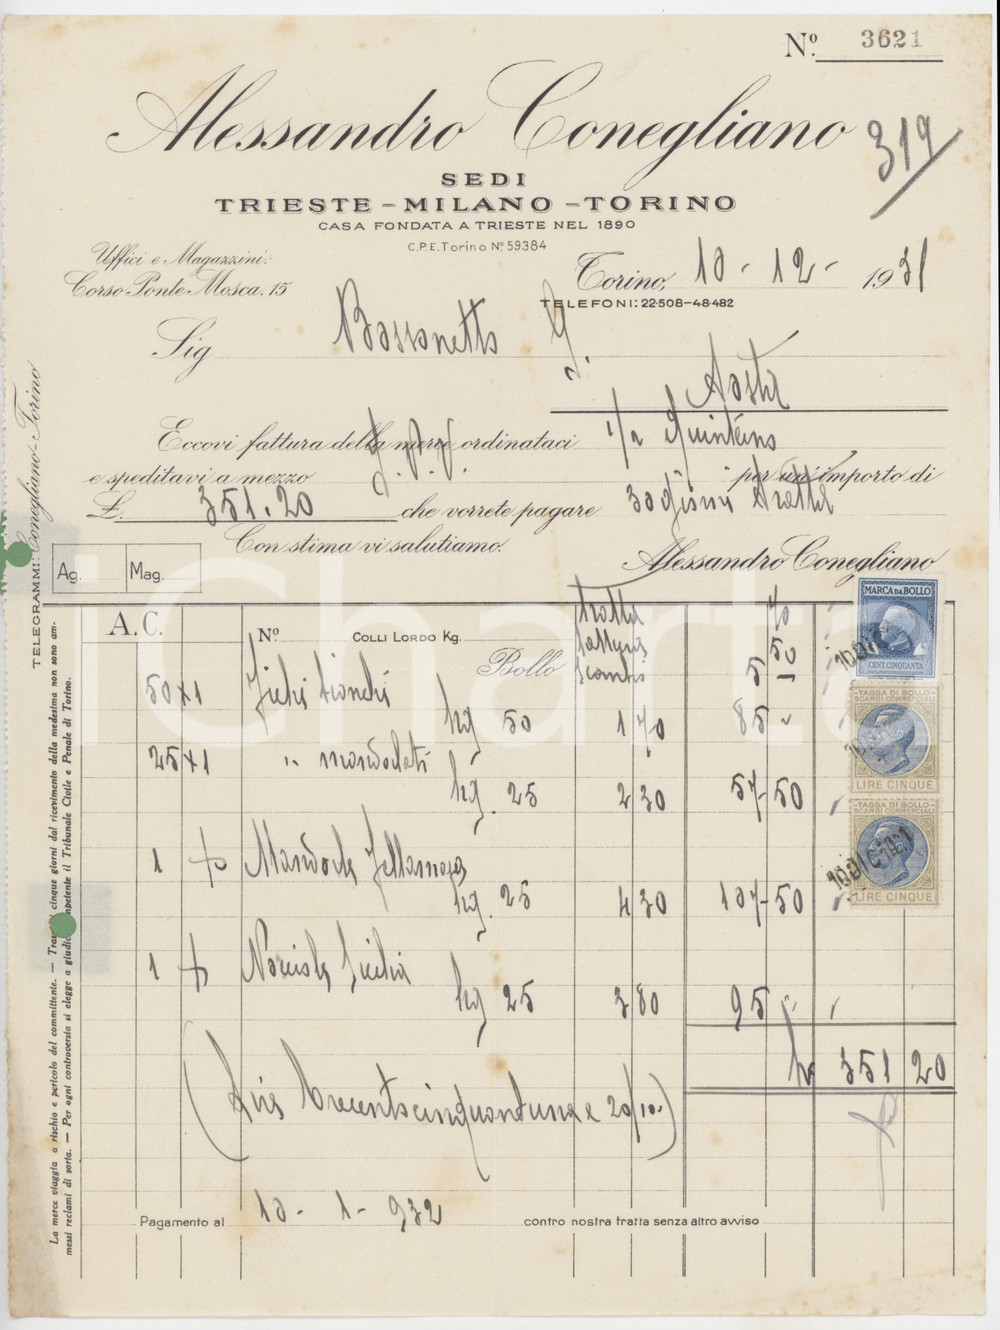 Nº. 3621
Alessandro Conegliano
319
SEDI
TRIESTE - MILANO - TORINO
CASA FONDATA A TRIESTE NEL 1890
C.P.E. Torino Nº 59384
Uffici e Magazzini:
Corso Ponte Mosca, 15
Torino, 10 - 12 - 1931
TELEFONI: 22-508 - 48-482
Sig Bassanetto G.
Aosta
Eccovi fattura della merce ordinataci
e speditavi a mezzo per un importo di
£. 351.20 che vorrete pagare 30 giorni tratta
Con stima vi salutiamo.
Alessandro Conegliano
Ag. Mag.
TELEGRAMMI: Conegliano-Torino
A. C. Nº COLLI LORDO Kg.
Bollo 5 50
MARCA DA BOLLO
CENT. CINQUANTA
50x1 Fichi bianchi
kg 50 1 70 85 -
TASSA DI BOLLO
SCAMBI COMMERCIALI
LIRE CINQUE
25x1 " mandorlati
kg. 25 2 30 57-50
TASSA DI BOLLO
SCAMBI COMMERCIALI
10 DIC 1931
LIRE CINQUE
1 Mandorle
kg. 25 4 30 107-50
1 Nocciole Sicilia
kg 25 3 80 95
351 20
(Lire trecentocinquantuna e 20/10.)
Pagamento al 10 - 1 - 932 contro nostra tratta senza altro avviso
La merce viaggia a rischio e pericolo del committente. — cinque giorni dal ricevimento della medesima non sono am-
messi reclami di sorta. — Per ogni controversia si elegge a giudice competente il Tribunale Civile e Penale di Torino.
iCharta